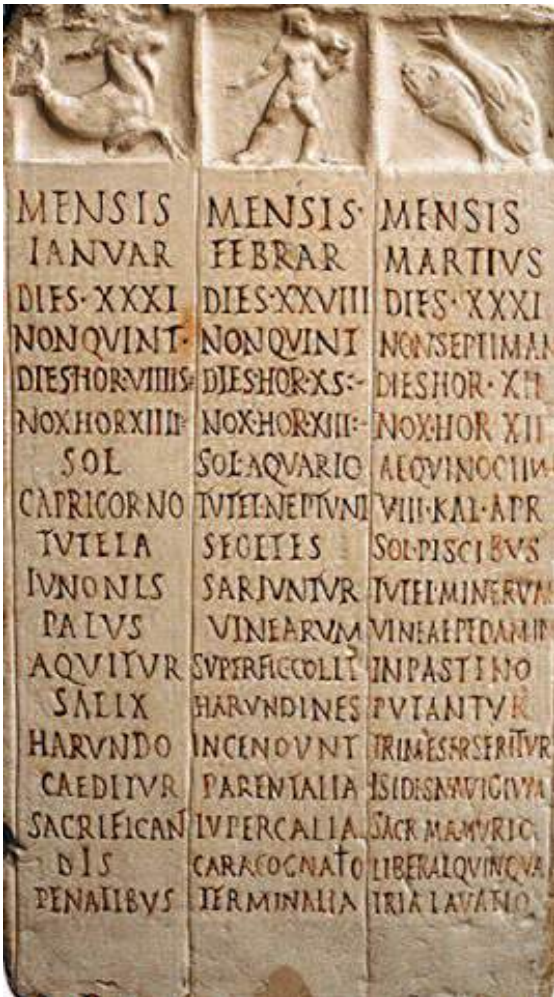 MENSIS
IANVAR
DIES·XXXI
NONQVINT·
DIES·HOR·VIIIIS=
NOX·HORXIIII·
SOL
CAPRICORNO
TVTELA
IVNONIS
PALVS
AQVITVR
SALIX
HARVNDO
CAEDITVR
SACRIFICAN
DIS
PENATIBVS
MENSIS·
FEBRAR
DIES·XXVIII
NONQVINT
DIES·HOR·XS:-
NOX·HOR·XIII:-
SOL·AQVARIO
TVTEL·NEPTVNI
SEGETES
SARIVNTVR
VINEARVM
SVPERFIC·COLIT
HARVNDINES
INCENDVNT
PARENTALIA
LVPERCALIA
CARA·COGNATO
TERMINALIA
MENSIS
MARTIVS
DIES·XXXI
NON·SEPTIMAN
DIES·HOR·XII
NOX·HOR XII
AEQVINOCTIVM
VIII·KAL·APR
SOL·PISCIBVS
TVTEL·MINERVAE
VINEAE·PEDAMIN
IN·PASTINO
PVTANTVR
TRIMES·SERITVR
ISIDIS·NAVIGIVM
SACR MAMVRIO
LIBERAL·QVINQVA
TRIA LAVATIO